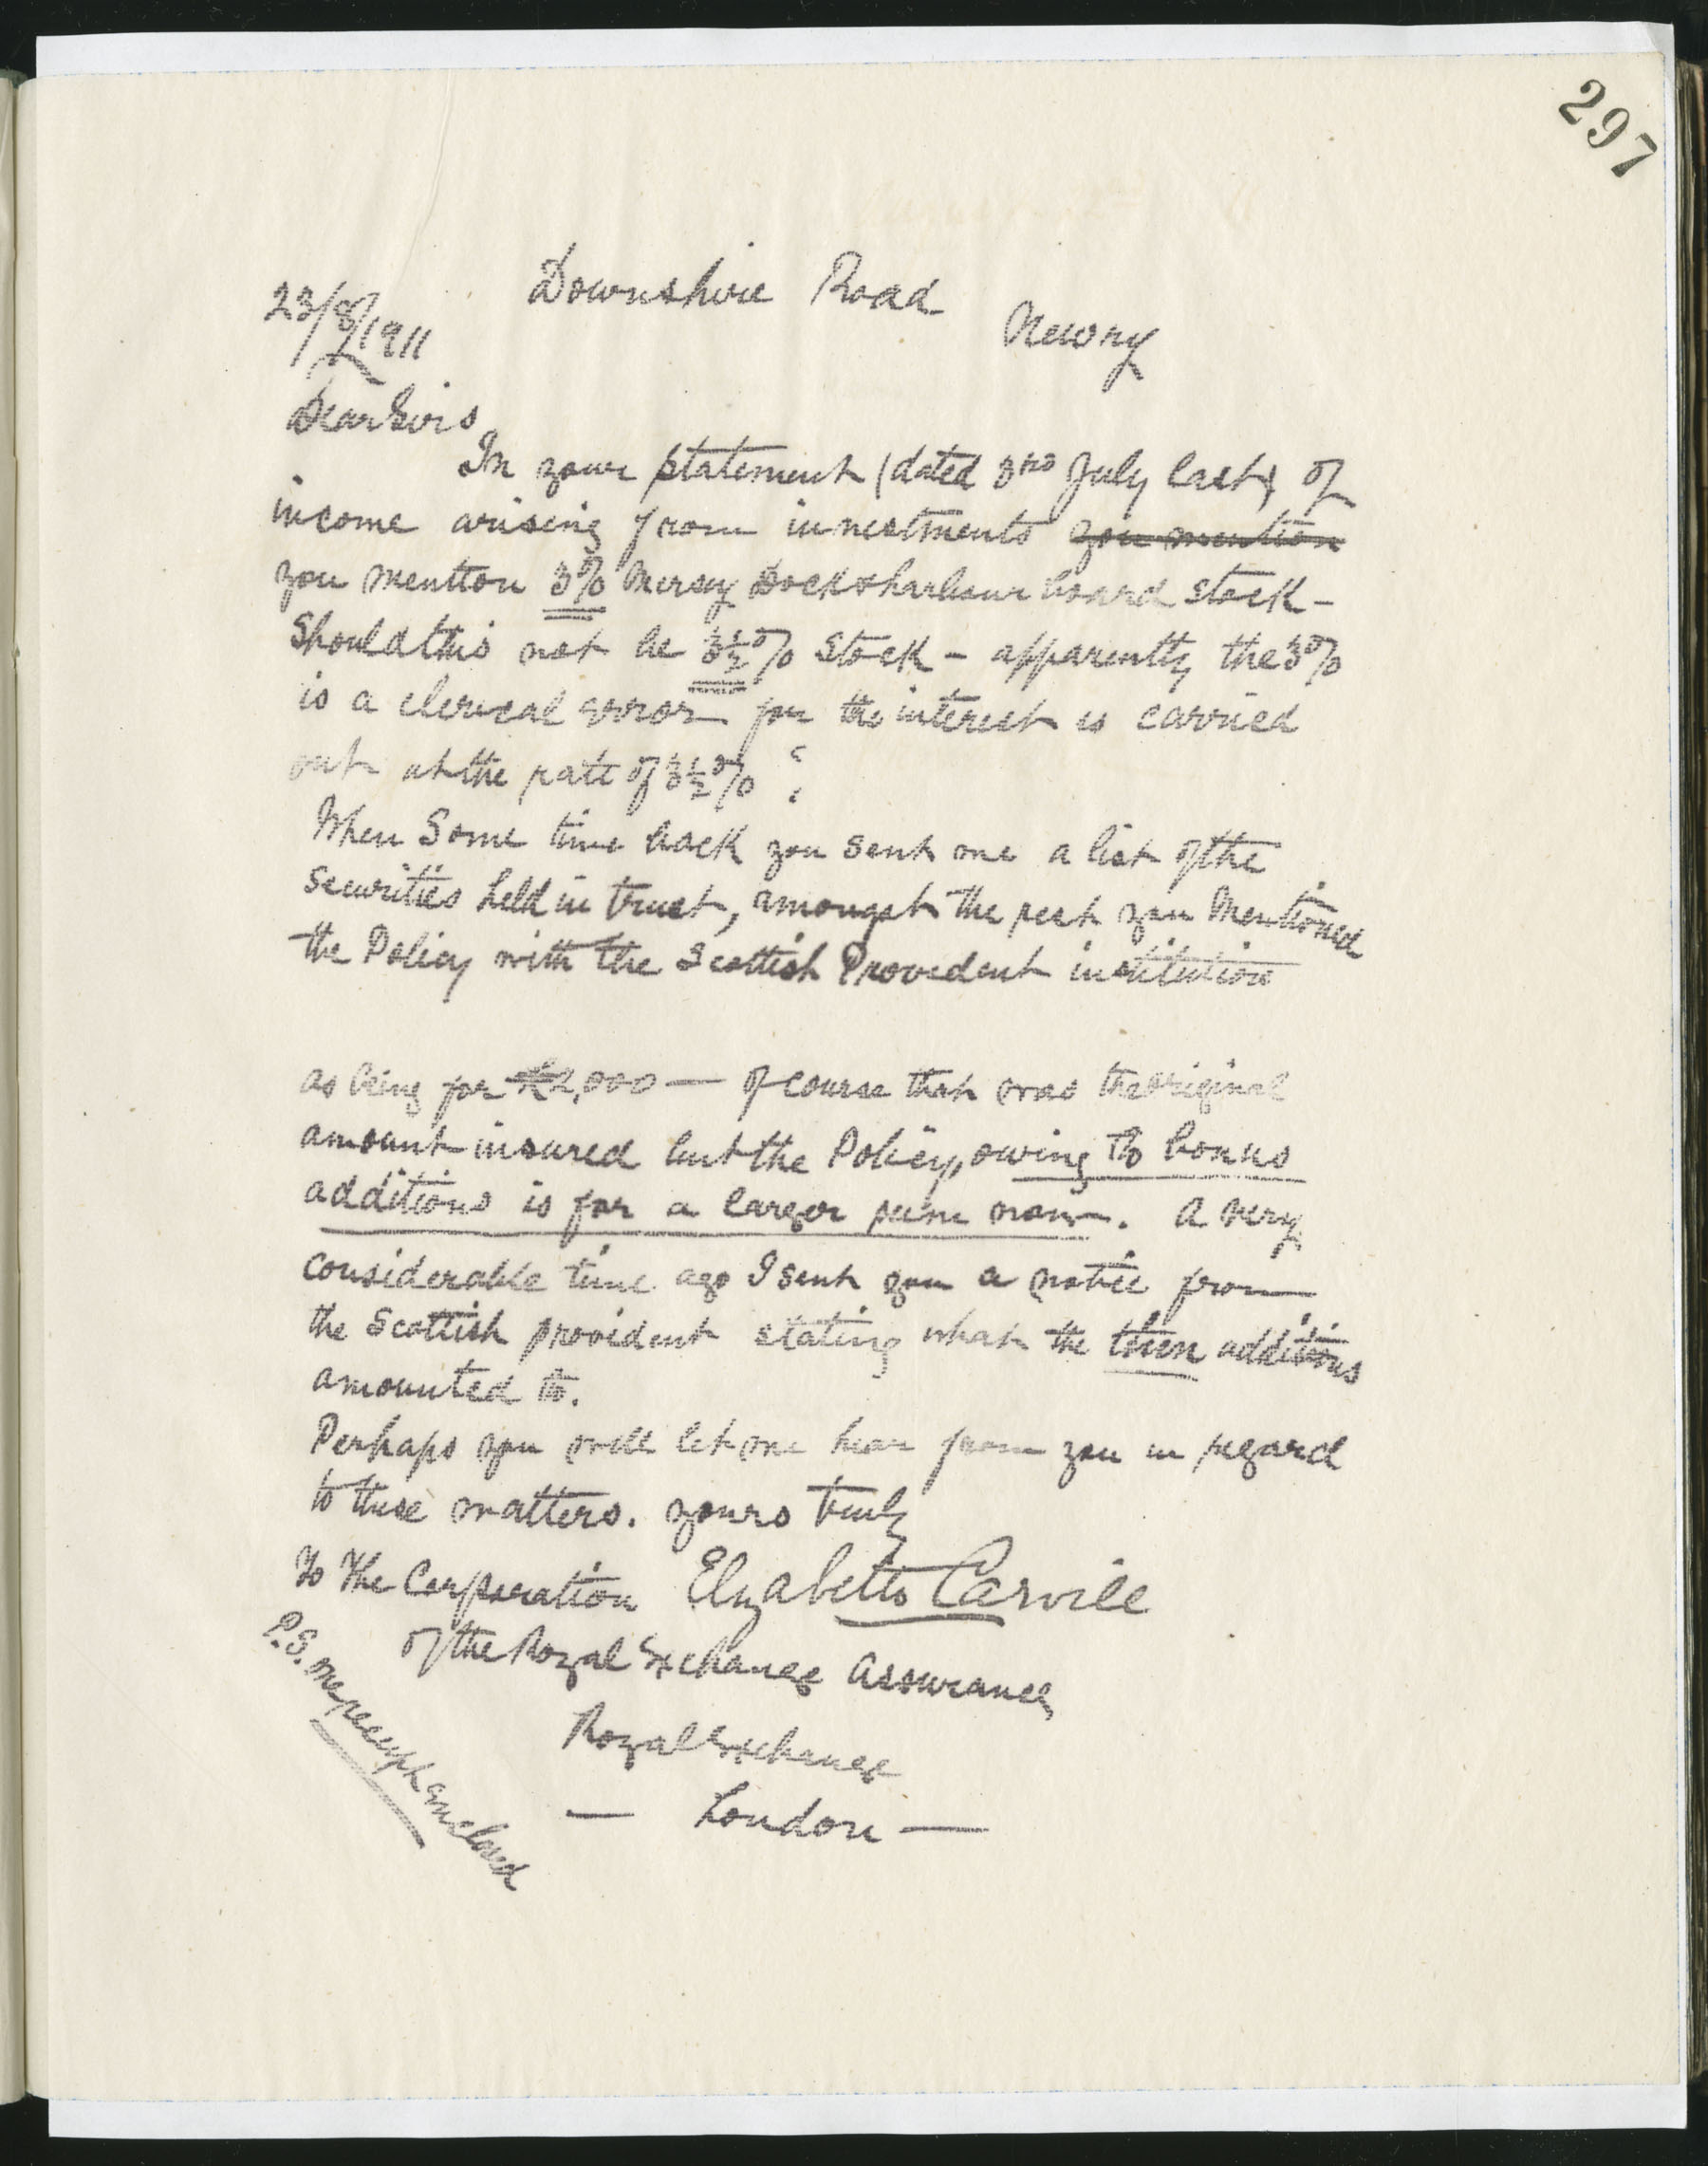 297
Downshire Road
Newry
23/8/1911
Dear Sirs,
In your statement (dated 3rd July last) of
income arising from investments you mention
you mention 3% Mersey Dock & harbour board stock -
Should this not be 3½% Stock - apparently the 3%
is a clerical error for the interest is carried
out at the rate of 3½% ?
When Some time back you sent me a list of the
securities held in trust, amongst the rest you mentioned
the Policy with the Scottish Provident institution
as being for £2,000 — of course that was the original
amount insured but the Policy, owing to bonus
additions is for a larger sum now. A very
considerable time ago I sent you a notice from
the Scottish provident stating what the then additions
amounted to.
Perhaps you will let me hear from you in regard
to these matters. yours truly
To The Corporation Elizabeth Carvill
of the Royal Exchange Assurance
Royal Exchange
— London —
P.S. receipt enclosed